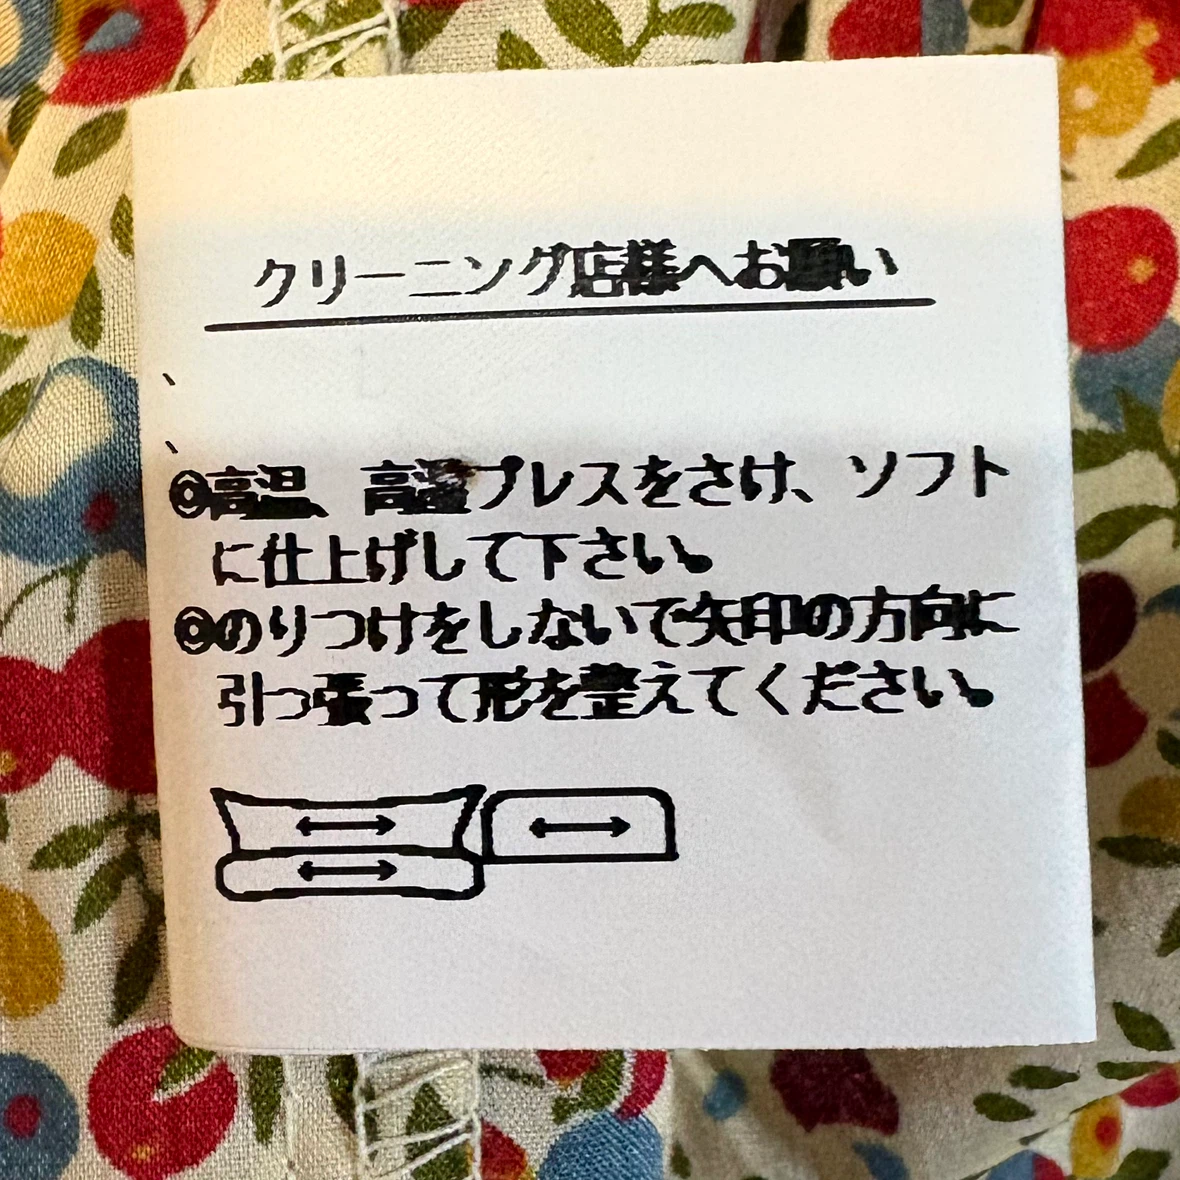 クリーニング店様へお願い
◎高温、高温プレスをさけ、ソフト
に仕上げして下さい。
◎のりつけをしないで矢印の方向に
引っ張って形を整えてください。